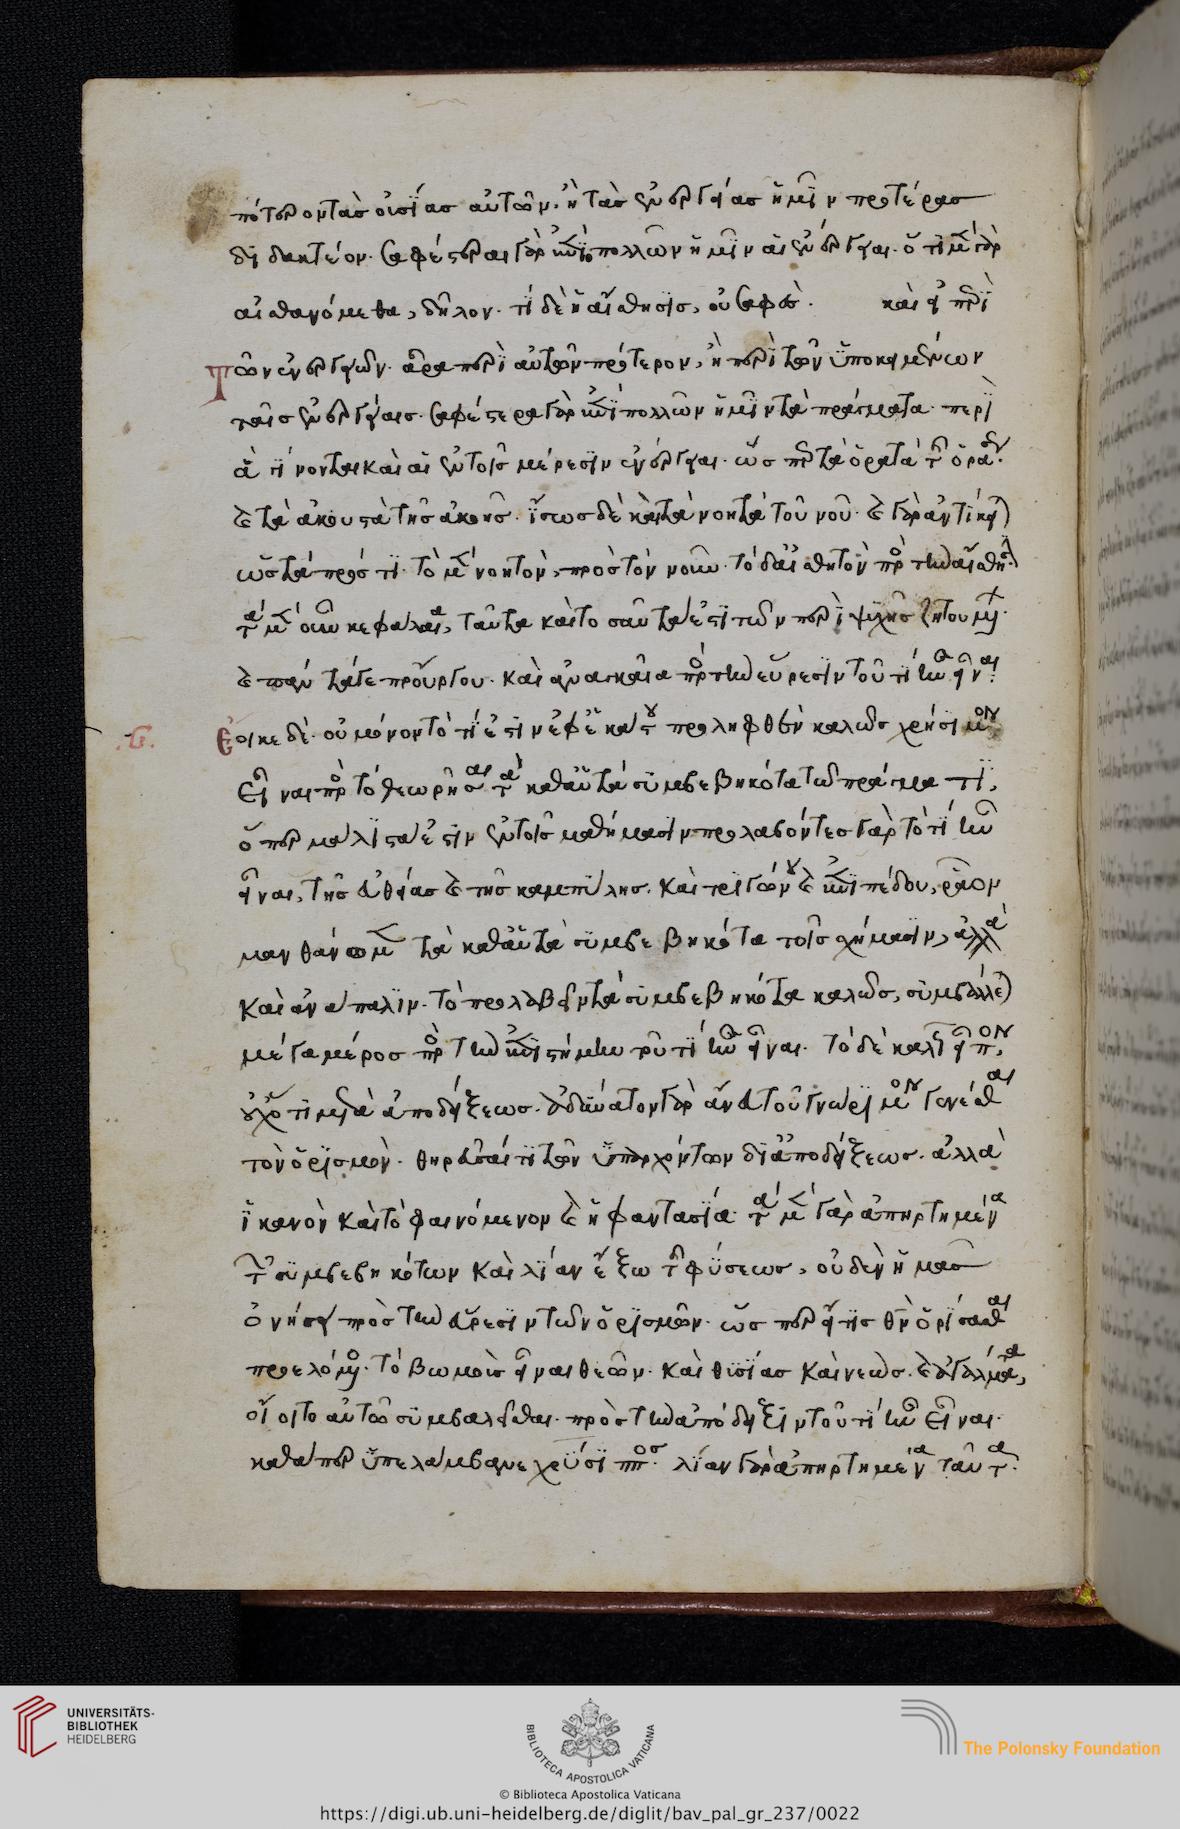 πότερον τὰς οὐσίας αὐτῶν, ἢ τὰς ἐνεργείας ἡμῖν προτέρας
διδακτέον. σαφέστεραι γὰρ ἐπὶ πολλῶν ἡμῖν αἱ ἐνέργειαι. ὅτι μὲν γὰρ
αἰσθανόμεθα, δῆλον. τί δὲ ἡ αἴσθησις, οὐ σαφὲς. καὶ εἰ περὶ
Τῶν ἐνεργειῶν. ἆρα περὶ αὐτῶν πρότερον, ἢ περὶ τῶν ὑποκειμένων
ταῖς ἐνεργείαις. σαφέστερα γὰρ ἐπὶ πολλῶν ἡμῖν τὰ πράγματα. περὶ
ἃ γίνονται καὶ αἱ ἐν τοῖς μέρεσιν ἐνέργειαι. ὥσπερ τὰ ὁρατὰ τῆς ὁράσεως.
καὶ τὰ ἀκουστὰ τῆς ἀκοῆς. ἴσως δὲ καὶ τὰ νοητὰ τοῦ νοῦ. καὶ γὰρ ἀντίκειται
ὡς τὰ πρός τι. τὸ μὲν νοητὸν, πρὸς τὸν νοῦν. τὸ δ' αἰσθητὸν πρὸς τὴν αἴσθησιν.
τὰ μὲν οὖν κεφάλαια, ταῦτα καὶ τοσαῦτα ἐστὶ τῶν περὶ ψυχῆς ζητουμένων.
καὶ πάντα γε προὔργου. καὶ ἀναγκαῖα πρὸς τὴν εὕρεσιν τοῦ τί ἦν εἶναι.
Ἔοικε δὲ οὐ μόνον τὸ τί ἐστιν ἐφ' ἑκάστου προληφθὲν καλῶς χρήσιμον
εἶναι πρὸς τὸ θεωρῆσαι τὰ καθ' αὑτὰ συμβεβηκότα τῷ πράγματι,
ὅπερ μάλιστά ἐστιν ἐν τοῖς μαθήμασιν προλαβόντες γὰρ τὸ τί ἦν
εἶναι, τῆς εὐθείας καὶ τῆς καμπύλης. καὶ τριγώνου καὶ ἐπιπέδου, ῥᾷον
μανθάνομεν τὰ καθ' αὑτὰ συμβεβηκότα τοῖς σχήμασιν, ἀλλὰ
καὶ ἀνάπαλιν. τὸ προλαβεῖν τὰ συμβεβηκότα καλῶς, συμβάλλεται
μέγα μέρος πρὸς τὴν ἐπιστήμην τοῦ τί ἦν εἶναι. τὸ δὲ καλῶς εἶπον,
οὐχ ὅτι μετὰ ἀποδείξεως. ἀδύνατον γὰρ ἄνευ τοῦ γνώριμον γενέσθαι
τὸν ὁρισμὸν. θηρᾶσαί τι τῶν ὑπαρχόντων δι' ἀποδείξεως. ἀλλὰ
ἱκανὸν καὶ τὸ φαινόμενον καὶ ἡ φαντασία. τὰ μὲν γὰρ ἀπηρτημένα
τῶν συμβεβηκότων καὶ λίαν ἔξω τῆς φύσεως, οὐδὲν ἡμᾶς
ὀνήσει πρὸς τὴν εὕρεσιν τῶν ὁρισμῶν. ὥσπερ εἴ τις θεὸν ὁρίσασθαι
προελόμενος. τὸ βωμοὺς εἶναι θεῶν. καὶ θυσίας καὶ νεὼς. καὶ ἀγάλματα,
οἴοιτο αὐτῷ συμβαλεῖσθαι. πρὸς τὴν ἀπόδειξιν τοῦ τί ἦν εἶναι.
καθάπερ ὑπελάμβανε χρύσιππος. λίαν γὰρ ἀπηρτημένα ταῦτα.
UNIVERSITÄTS-
BIBLIOTHEK
HEIDELBERG
BIBLIOTECA APOSTOLICA VATICANA
The Polonsky Foundation
© Biblioteca Apostolica Vaticana
https://digi.ub.uni-heidelberg.de/diglit/bav_pal_gr_237/0022